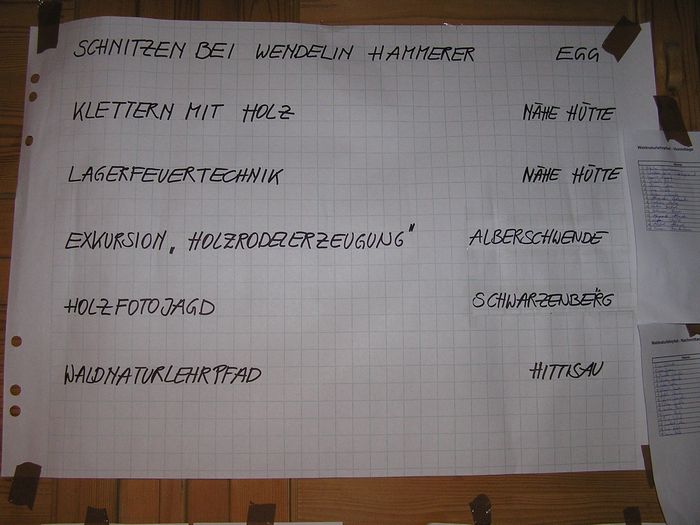 SCHNITZEN BEI WENDELIN HAMMERER EGG
KLETTERN MIT HOLZ NÄHE HÜTTE
LAGERFEUERTECHNIK NÄHE HÜTTE
EXKURSION „HOLZRODELERZEUGUNG" ALBERSCHWENDE
HOLZFOTOJAGD SCHWARZENBERG
WALDNATURLEHRPFAD HITTISAU